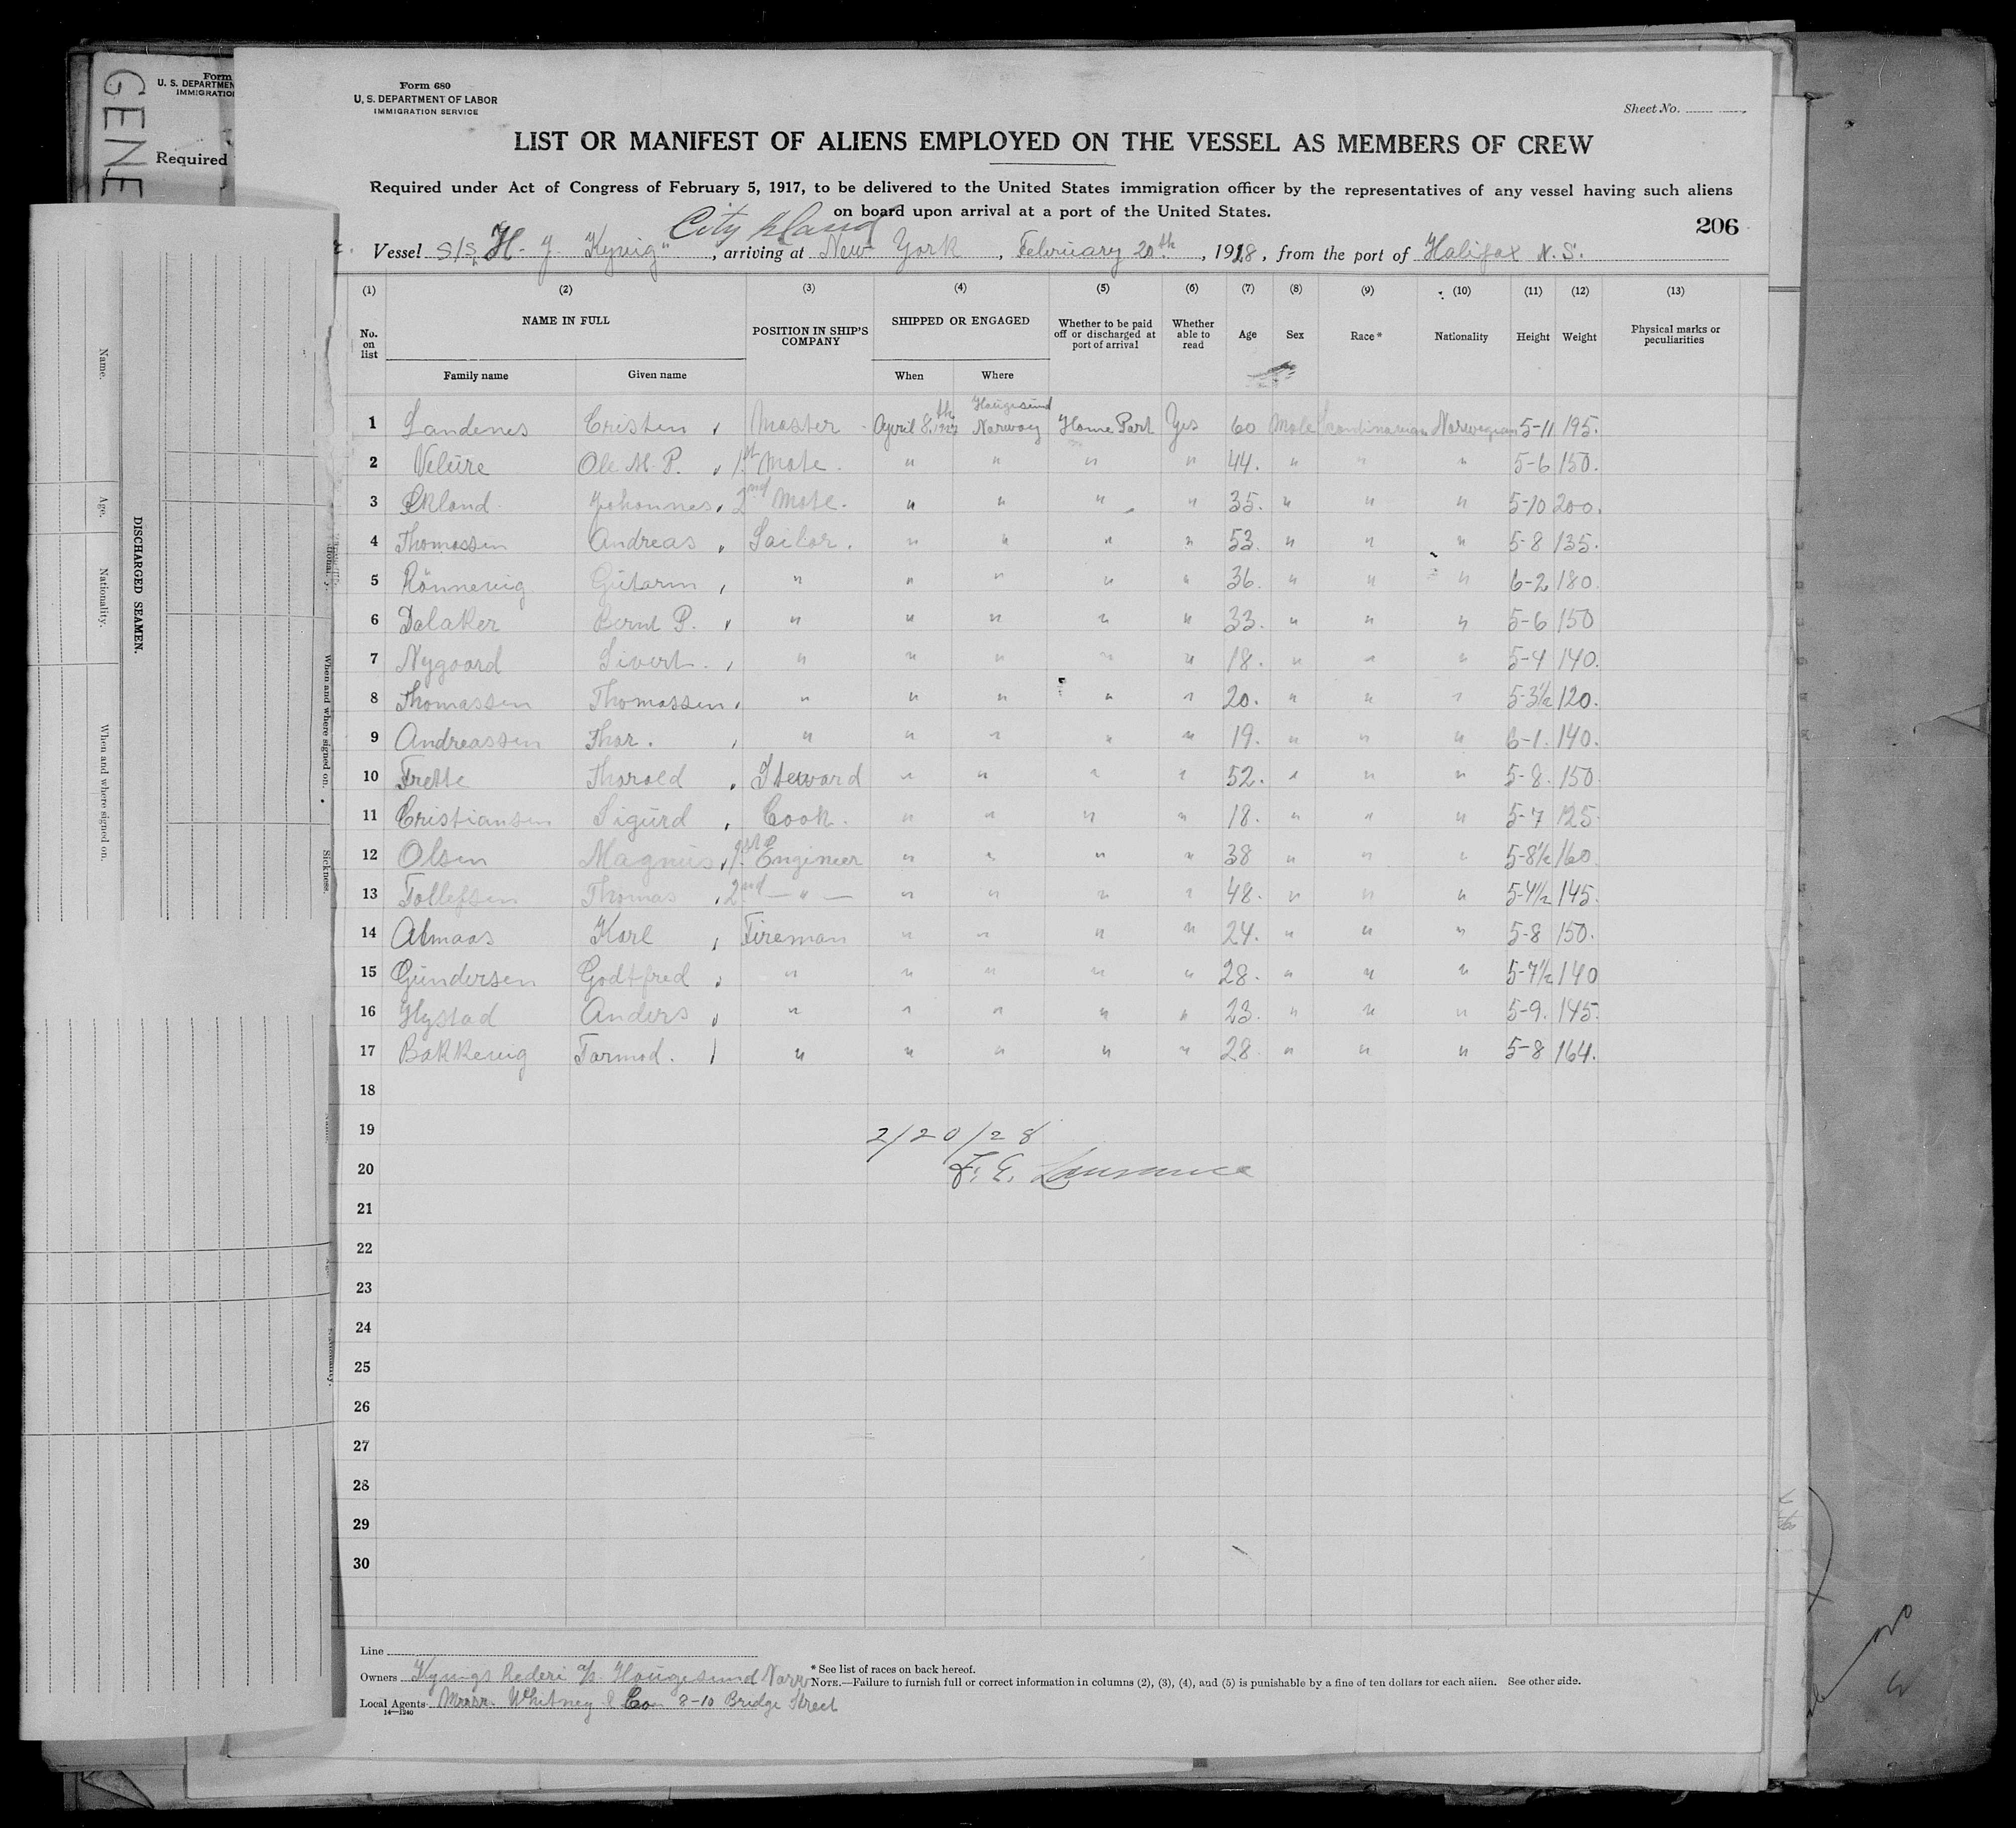 GENE
Form
U. S. DEPARTMEN
IMMIGRATIO
Required
Form 680
U. S. DEPARTMENT OF LABOR
IMMIGRATION SERVICE
Sheet No.
LIST OR MANIFEST OF ALIENS EMPLOYED ON THE VESSEL AS MEMBERS OF CREW
Required under Act of Congress of February 5, 1917, to be delivered to the United States immigration officer by the representatives of any vessel having such aliens
on board upon arrival at a port of the United States.
206
City Island
Vessel S/S "H. J. Kyvig", arriving at New York, February 20th, 1928, from the port of Halifax N. S.
(1) (2) (3) (4) (5) (6) (7) (8) (9) (10) (11) (12) (13)
No. on list NAME IN FULL POSITION IN SHIP'S COMPANY SHIPPED OR ENGAGED Whether to be paid off or discharged at port of arrival Whether able to read Age Sex Race* Nationality Height Weight Physical marks or peculiarities
Family name Given name When Where
1 Sandenes Cristen Master April 8th 1927 Haugesund Norway Home Port Yes 60 Male Scandinavian Norwegian 5-11 195.
2 Velure Ole M. P. 1st Mate. " " " " 44. " " " 5-6 150.
3 Ekland Johannes 2nd Mate. " " " " 35. " " " 5-10 200.
4 Thomassen Andreas Sailor. " " " " 53. " " " 5-8 135.
5 Rönnevig Gutorm " " " " " 36. " " " 6-2 180.
6 Dalaker Bernt P. " " " " " 33. " " " 5-6 150
7 Nygaard Sivert. " " " " " 18. " " " 5-4 140.
8 Thomassen Thomassen " " " " " 20. " " " 5-3½ 120.
9 Andreassen Thor. " " " " " 19. " " " 6-1. 140.
10 Frette Thorald Steward " " " " 52. " " " 5-8. 150
11 Cristiansen Sigurd Cook. " " " " 18. " " " 5-7 125.
12 Olsen Magnus 1st Engineer " " " " 38 " " " 5-8½ 160
13 Tollefsen Thomas 2nd — " — " " " " 48. " " " 5-4½ 145.
14 Almaas Karl Fireman " " " " 24. " " " 5-8 150.
15 Gundersen Godtfred " " " " " 28. " " " 5-7½ 140
16 Hystad Anders " " " " " 23. " " " 5-9. 145.
17 Bakkevig Tormod. " " " " " 28 " " " 5-8 164.
18
19
2/20/28
20
F. E. Lawrence
21
22
23
24
25
26
27
28
29
30
Line
Owners Kyvigs Rederi a/s Haugesund Norw
Local Agents Messrs. Whitney & Co 8-10 Bridge Street
14—1240
* See list of races on back hereof.
NOTE.—Failure to furnish full or correct information in columns (2), (3), (4), and (5) is punishable by a fine of ten dollars for each alien. See other side.
DISCHARGED SEAMEN.
Name.
Age.
Nationality.
When and where signed on.
When and where signed on.
Sickness.